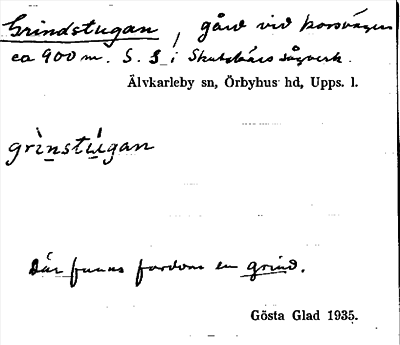 Grindstugan, gård vid korsvägen
ca 900 m. S. S i Skutskärs sågverk.
Älvkarleby sn, Örbyhus hd, Upps. l.
grìnstú̱gan
Där fanns fordom en grind.
Gösta Glad 1935.